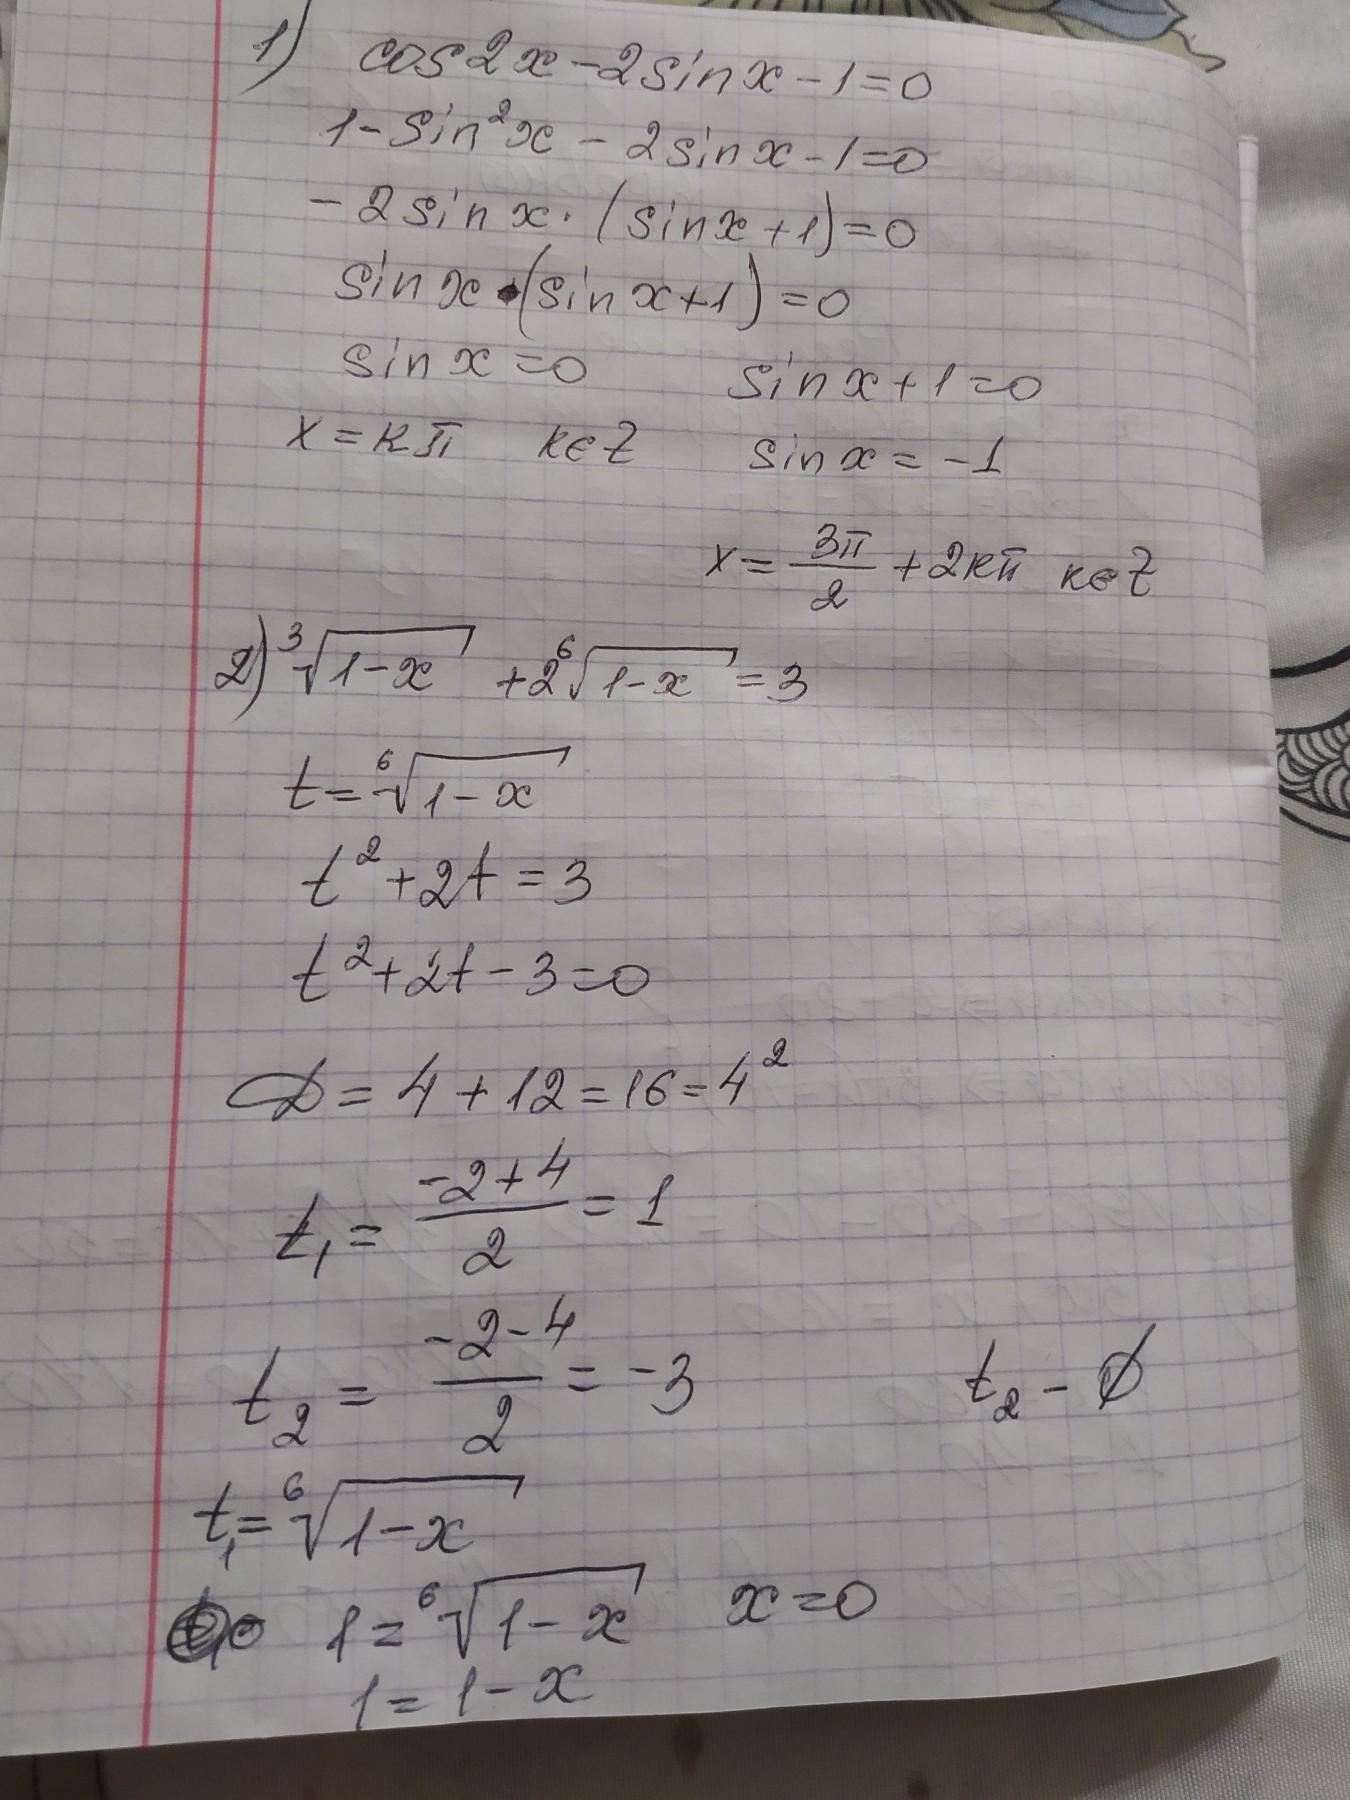 1) cos2x-2sinx-1=0
1-sin²x-2sinx-1=0
-2sinx·(sinx+1)=0
sinx·(sinx+1)=0
sinx=0 sinx+1=0
x=kπ k∈Z sinx=-1
x=3π/2+2kπ k∈Z
2) ³√(1-x) +2⁶√(1-x)=3
t=⁶√(1-x)
t²+2t=3
t²+2t-3=0
D=4+12=16=4²
t₁=(-2+4)/2=1
t₂=(-2-4)/2=-3 t₂-∅
t₁=⁶√(1-x)
1=⁶√(1-x) x=0
1=1-x